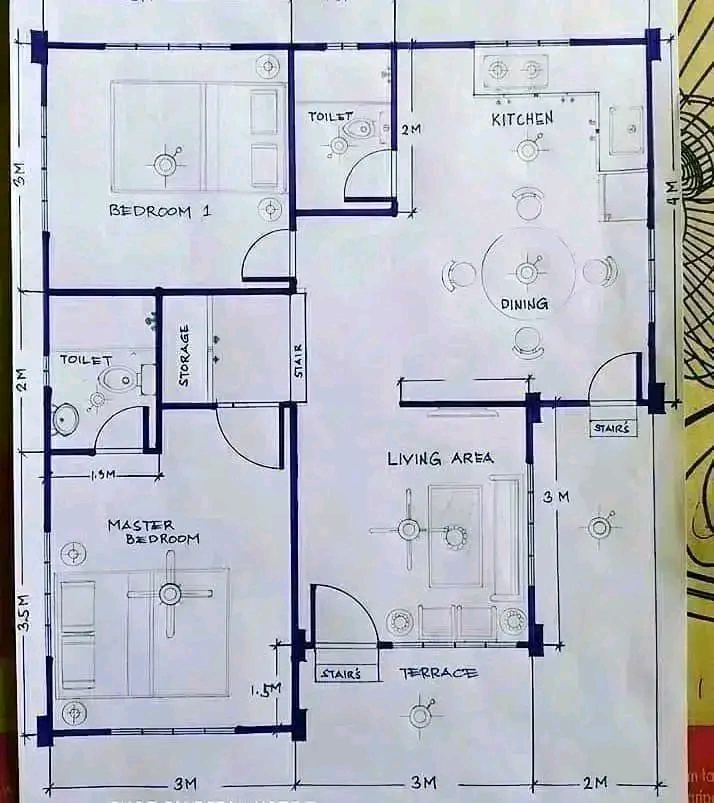 TOILET
2M
KITCHEN
3M
4M
BEDROOM 1
DINING
TOILET
STORAGE
STAIR
2M
STAIR'S
1.5M
LIVING AREA
3M
MASTER
BEDROOM
3.5M
1.5M
STAIR'S
TERRACE
3M
3M
2M